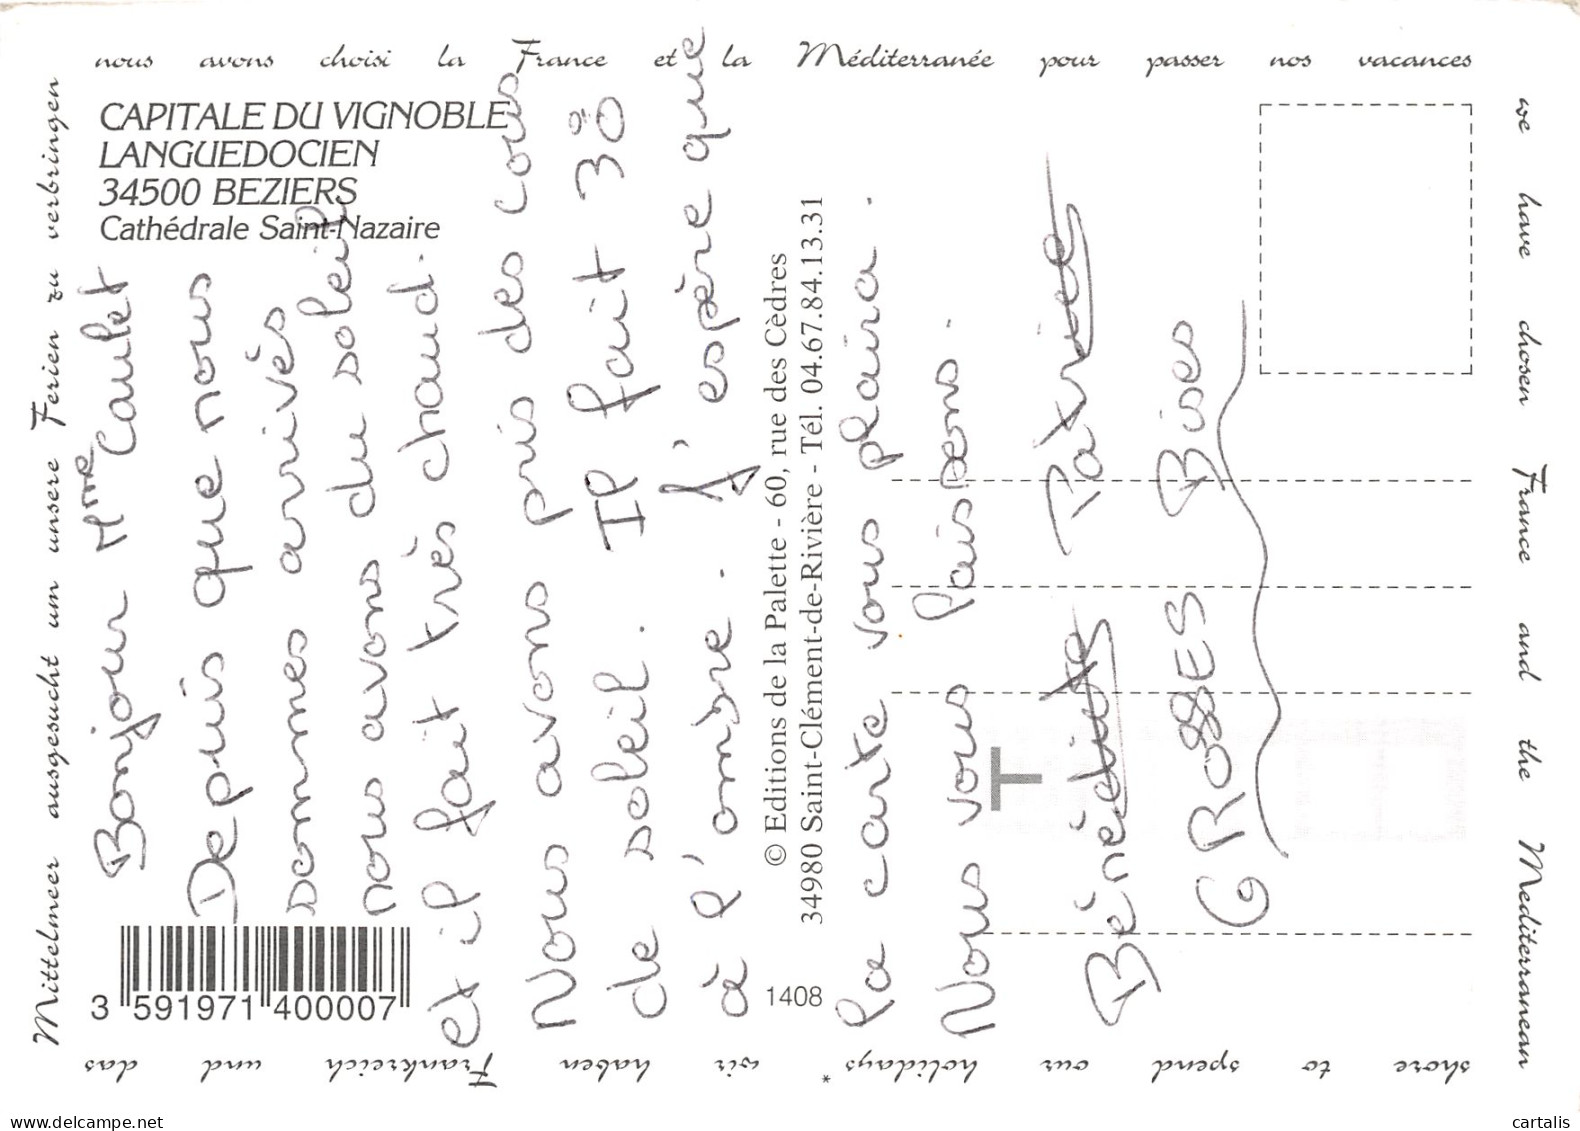 nous avons choisi la France et la Méditerranée pour passer nos vacances
we have chosen France and the Mediterranean
shore to spend our holidays *
wir haben Frankreich und das
Mittelmeer ausgesucht um unsere Ferien zu verbringen
CAPITALE DU VIGNOBLE
LANGUEDOCIEN
34500 BEZIERS
Cathédrale Saint-Nazaire
Bonjour Mme Caulet
Depuis que nous
sommes arrivès
nous avons du soleil
et il fait très chaud.
Nous avons pris des cous
de soleil. Il fait 30°
à l'ombre. J'espère que
la carte vous plaira.
Nous vous laissons.
Bénédicte Patrice
GROSSES Bises
© Editions de la Palette - 60, rue des Cèdres
34980 Saint-Clément-de-Rivière - Tél. 04.67.84.13.31
T
3 591971 400007
1408
cartalis
www.delcampe.net